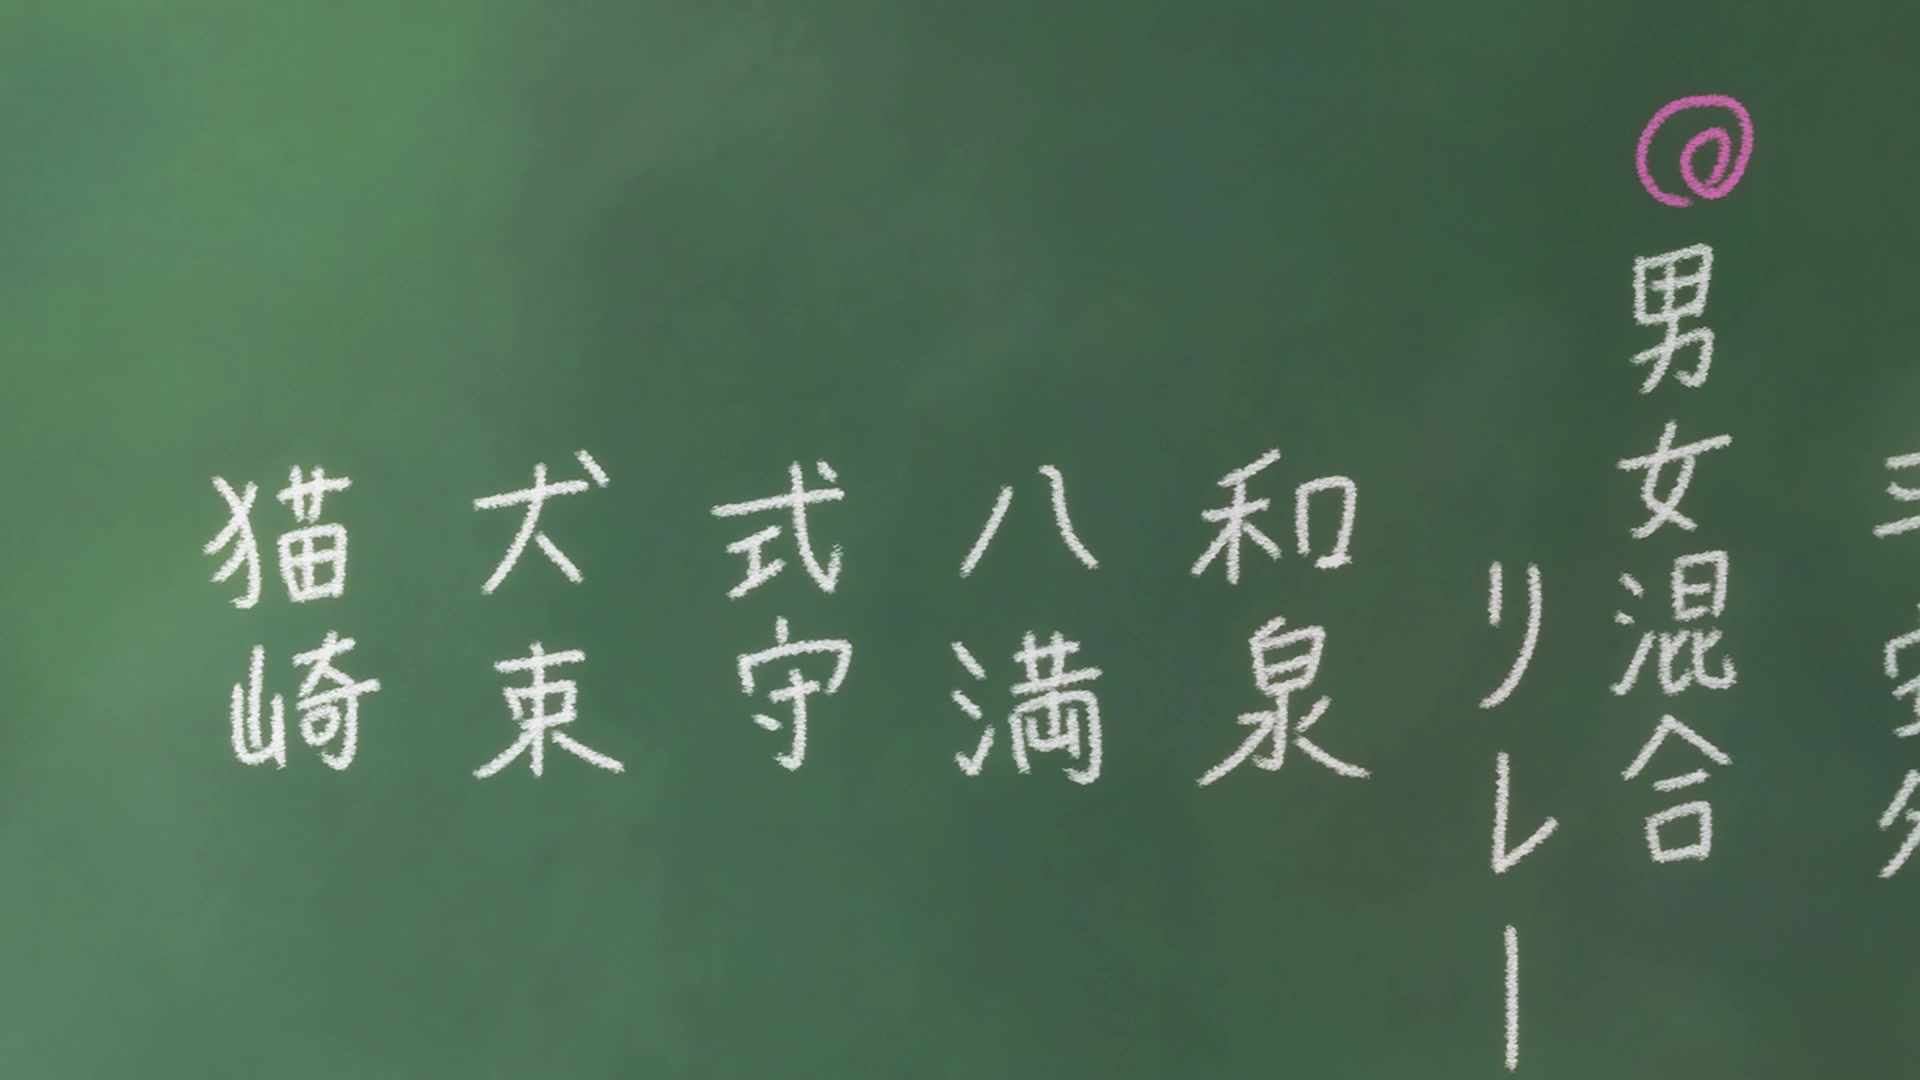 男女混合
リレー
和泉
八満
式守
犬束
猫崎